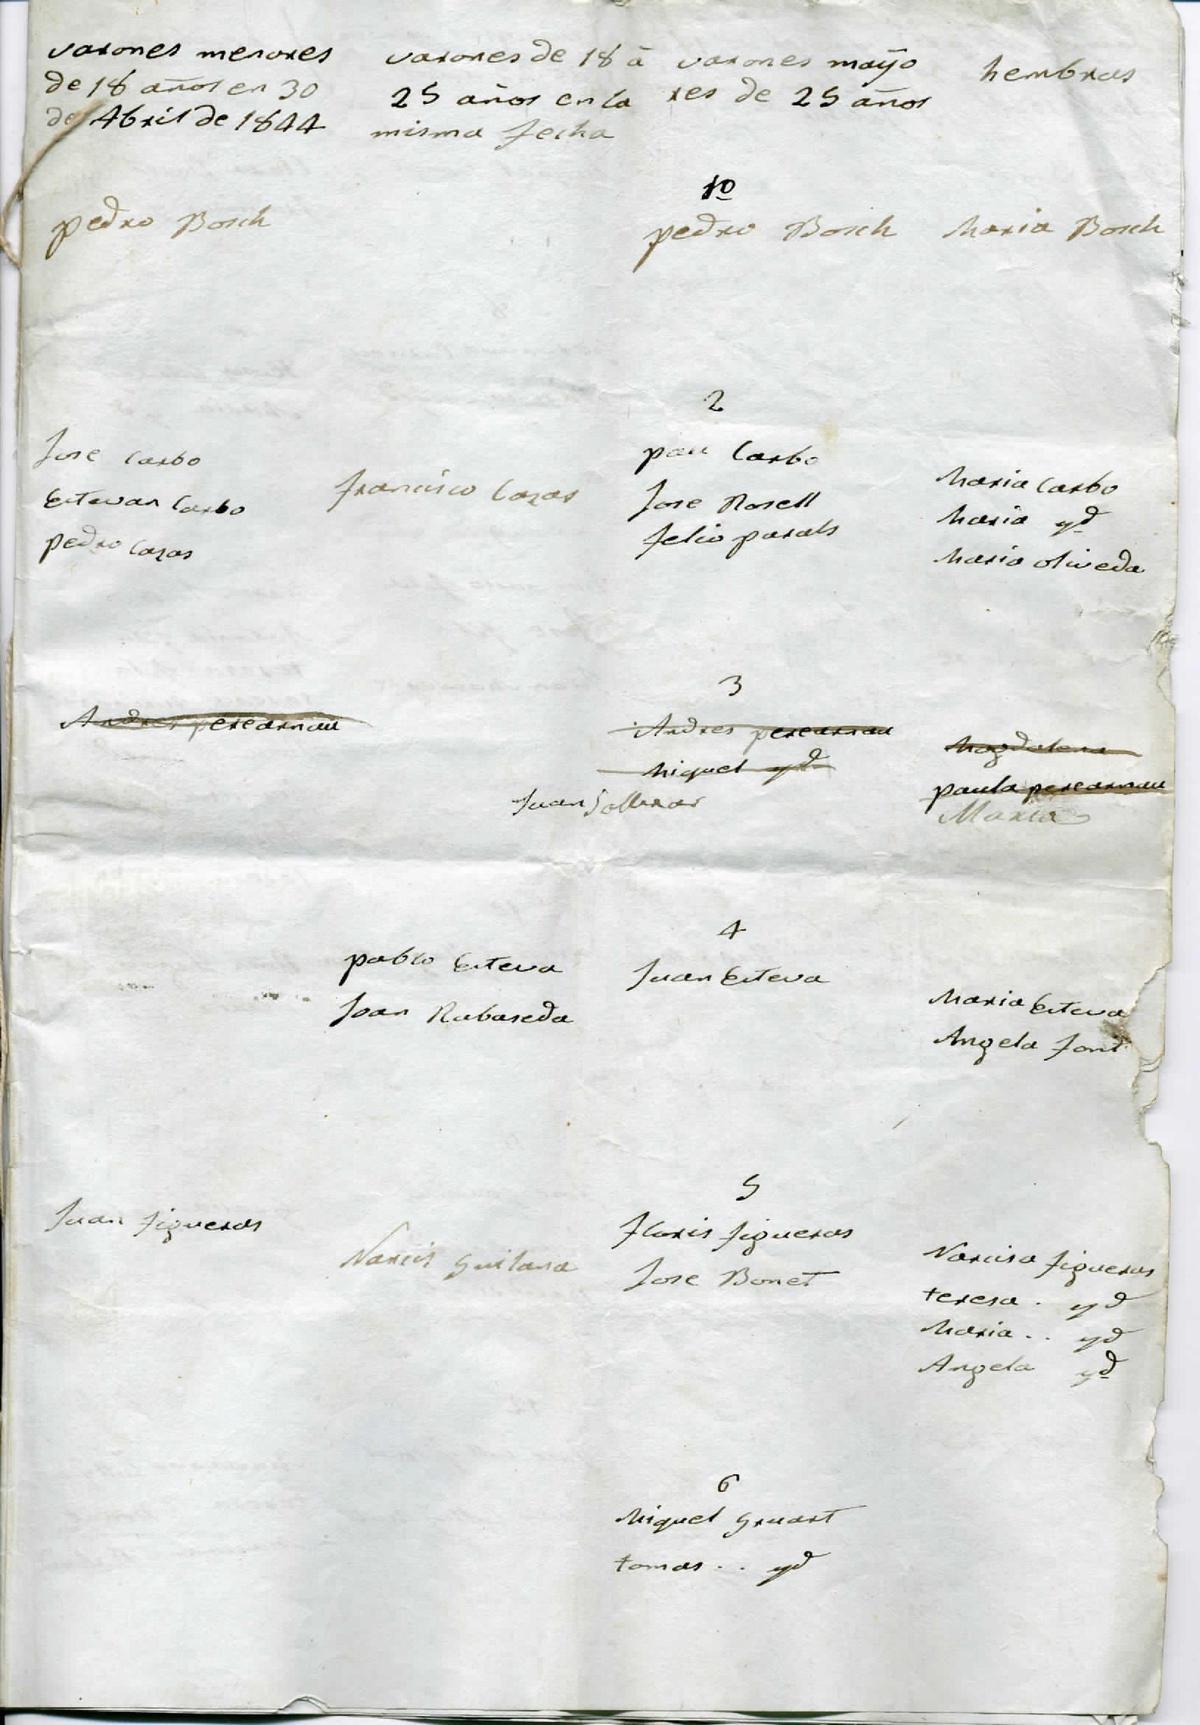 varones menores
de 18 años en 30
de Abril de 1844
varones de 18 á
25 años en la
misma fecha
varones mayo
res de 25 años
hembras
1º
pedro Bosch
pedro Bosch
Maria Bosch
2
Jose Carbo
Estevan Carbo
pedro Cazas
Francisco Cazas
pau Carbo
Jose Rosell
felio parals
Maria Carbo
Maria yd
Maria oliveda
3
Andres perearnau
Andres perearnau
Miquel yd
Juan
Magdalena
paula perearnau
Maria
4
pablo Esteva
Joan Rabaseda
Juan Esteva
Maria Esteva
Angela font
5
Juan figueras
Narcis Guitana
Floris figueras
Jose Bonet
Narcisa figueras
teresa . yd
Maria . . yd
Angela yd
6
Miquel Gruart
tomas . . yd